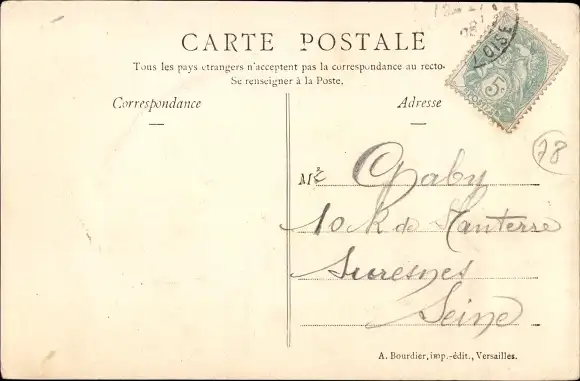 CARTE POSTALE
Tous les pays étrangers n'acceptent pas la correspondance au recto.
Se renseigner à la Poste.
Correspondance
Adresse
OISE
5
78
Gaby
10 R de Nanterre
Suresnes
Seine
A. Bourdier, imp.-édit., Versailles.